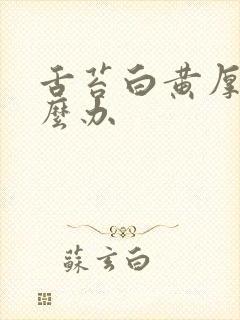 舌苔白黄厚
麼办
蘇玄白